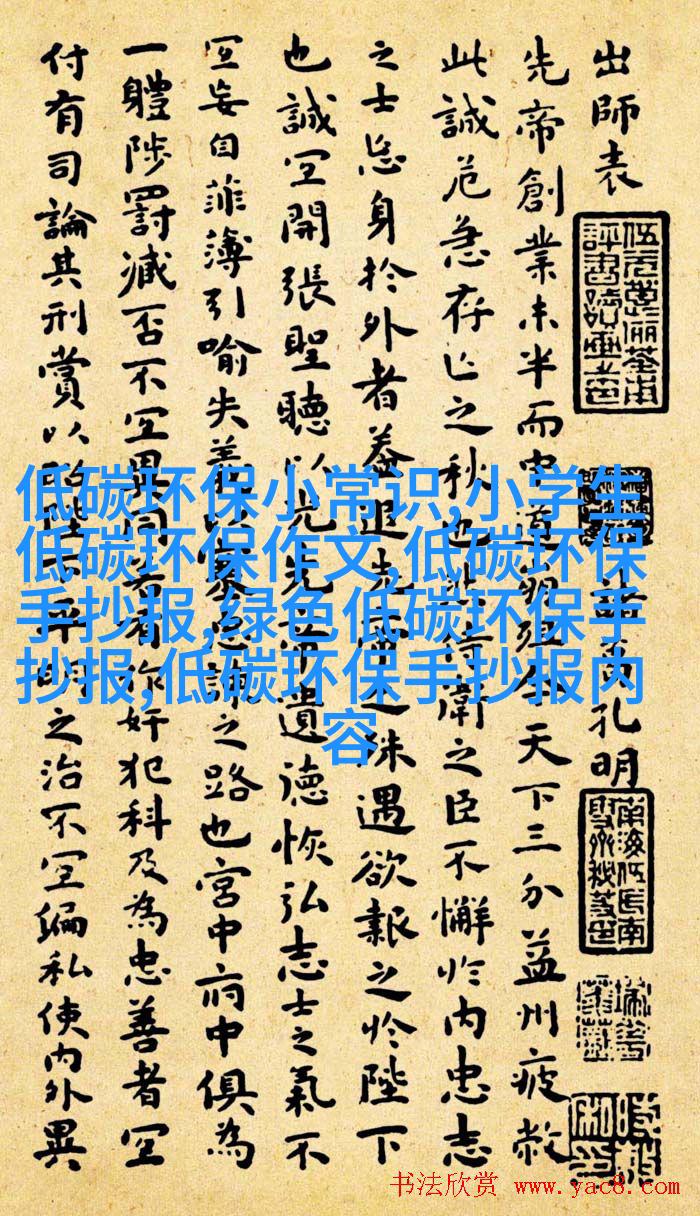 出師表
孔明
先帝創業未半而中道崩殂今天下三分益州疲敝
此誠危急存亡之秋也然侍衛之臣不懈於内忠志
之士忘身於外者蓋追先帝之殊遇欲報之於陛下
也誠宜開張聖聽以光先帝遺德恢弘志士之氣不
宜妄自菲薄引喻失義以塞忠諫之路也宮中府中俱為
一體陟罰臧否不宜異同若有作奸犯科及為忠善者宜
付有司論其刑賞以昭陛下平明之治不宜偏私使内外異
低碳环保小常识,小学生
低碳环保作文,低碳环保
手抄报,绿色低碳环保手
抄报,低碳环保手抄报内
容
书法欣赏 www.yac8.com